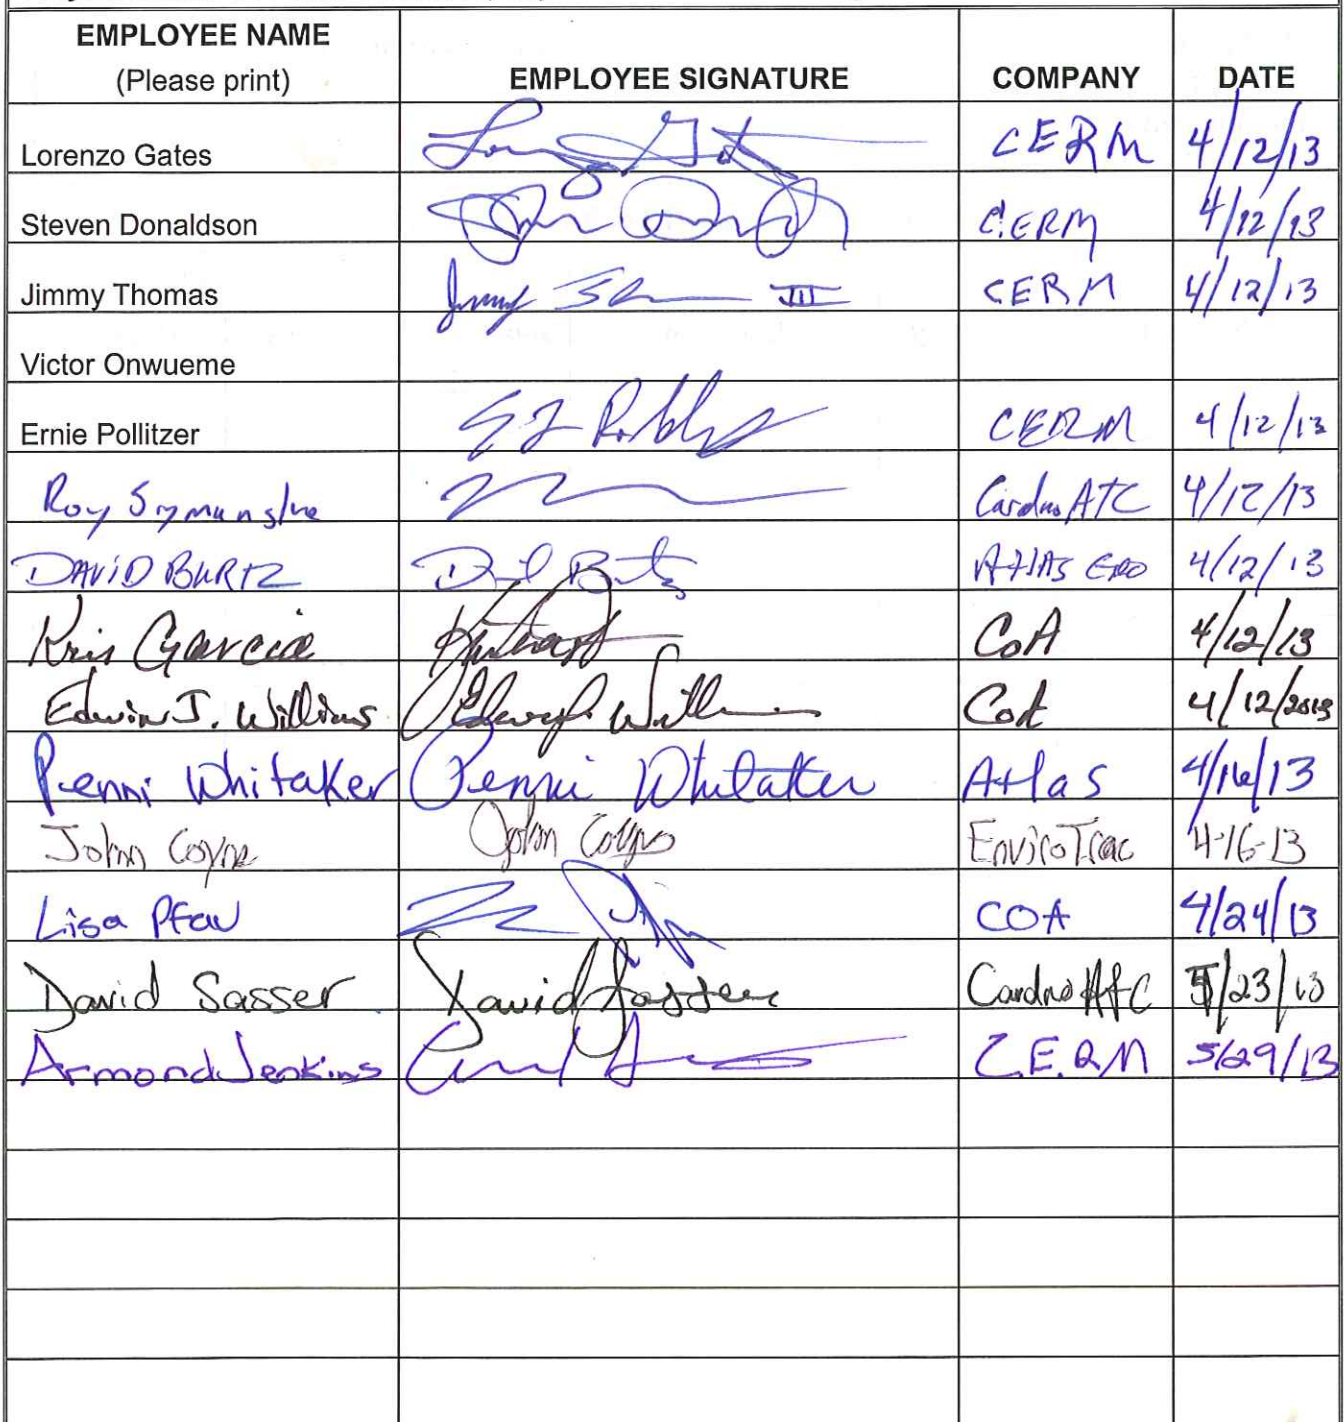 EMPLOYEE NAME
(Please print) EMPLOYEE SIGNATURE COMPANY DATE
Lorenzo Gates CERM 4/12/13
Steven Donaldson C.ERM 4/12/13
Jimmy Thomas III CERM 4/12/13
Victor Onwueme
Ernie Pollitzer CERM 4/12/13
Roy Cardno ATC 4/12/13
DAViD BURTZ Atlas 4/12/13
Kris Garcia CoA 4/12/13
Edwin J. Williams CoA 4/12/2013
Penni Whitaker Penni Whitaker Atlas 4/16/13
John Coyne John Coyne EnviroTrac 4-16-13
Lisa Pfau COA 4/24/13
David Sasser David Sasser Cardno ATC 5/23/13
Armond Jenkins C.E.R.M 5/29/13